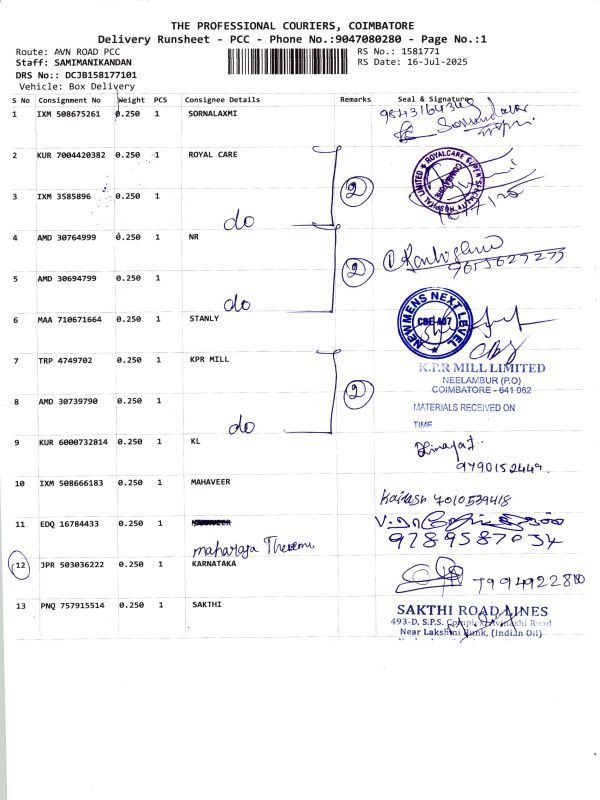 THE PROFESSIONAL COURIERS, COIMBATORE
Delivery Runsheet - PCC - Phone No.:9047080280 - Page No.:1
Route: AVN ROAD PCC
RS No.: 1581771
Staff: SAMIMANIKANDAN
RS Date: 16-Jul-2025
DRS No:: DCJB158177101
Vehicle: Box Delivery
S No Consignment No Weight PCS Consignee Details Remarks Seal & Signature
1 IXM 508675261 0.250 1 SORNALAXMI
2 KUR 7004420382 0.250 1 ROYAL CARE
3 IXM 3585896 0.250 1 do 2
4 AMD 30764999 0.250 1 NR
5 AMD 30694799 0.250 1 do 2
6 MAA 710671664 0.250 1 STANLY
NEWMENS NEXT LEVEL
7 TRP 4749702 0.250 1 KPR MILL
K.P.R MILL LIMITED
NEELAMBUR (P.O)
COIMBATORE - 641 062
8 AMD 30739790 0.250 1 do 2
MATERIALS RECEIVED ON
TIME
9 KUR 6000732814 0.250 1 KL
9790152449
10 IXM 508666183 0.250 1 MAHAVEER
Kailash 7010539418
11 EDQ 16784433 0.250 1
9789587034
maharaja
12 JPR 503036222 0.250 1 KARNATAKA
7994922810
13 PNQ 757915514 0.250 1 SAKTHI
SAKTHI ROAD LINES
493-D, S.P.S. Avinashi Road
Near Lakshmi Bunk, (Indian Oil)